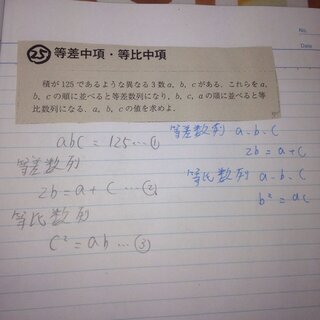 25 等差中項・等比中項
積が125であるような異なる3数a, b, cがある. これらをa,
b, cの順に並べると等差数列になり, b, c, aの順に並べると等
比数列になる. a, b, cの値を求めよ.
abc = 125 … ①
等差数列
2b = a + c … ②
等比数列
c² = ab … ③
等差数列 a-b-c
2b = a + c
等比数列 a-b-c
b² = ac
No.